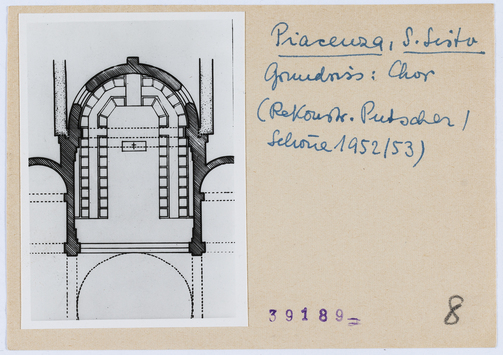 Piacenza, S. Sisto
Grundriss: Chor
(Rekonstr. Putscher/
Schöne 1952/53)
39189
8